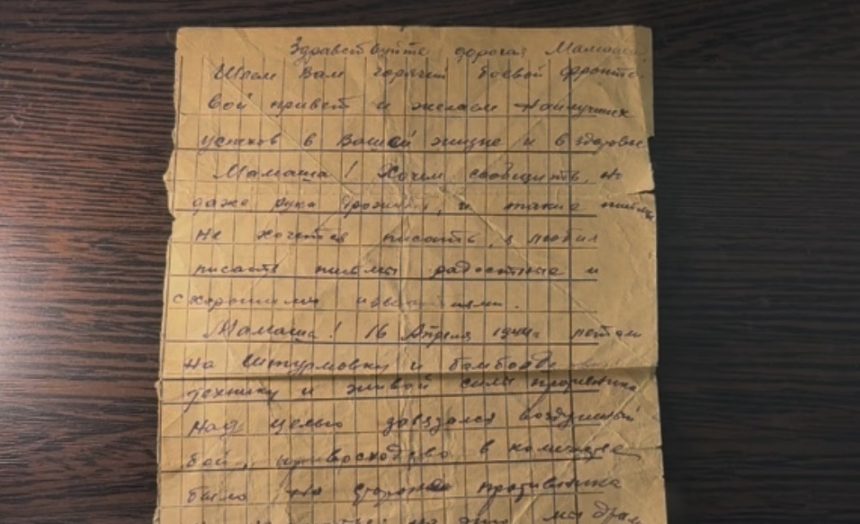 Здравствуйте дорогая Мамаша!
Шлем Вам горячий боевой фронто-
вой привет и желаем наилучших
успехов в Вашей жизне и в здоровье
Мамаша! Хочем сообщить, но
даже рука дрожит, и такие письма
не хочется писать, а любил
писать письмы радостные и
с хорошими известиями.
Мамаша! 16 Апреля 1944г. летали
на штурмовку и
технику и живой силы противника
Над целью завязался воздушный
бой, превосходство в
было на стороне противника
на это мы